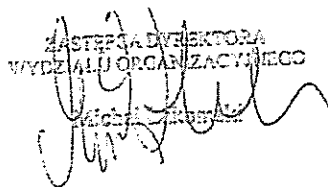 ZASTĘPCA DYREKTORA
WYDZIAŁU ORGANIZACYJNEGO
Michał